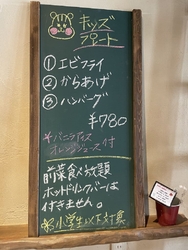 キッズ
プレート
① エビフライ
② からあげ
③ ハンバーグ
¥780
*バニラアイス
オレンジジュース付
前菜食べ放題
ホットドリンクバーは
付きません。
小学生以下対象